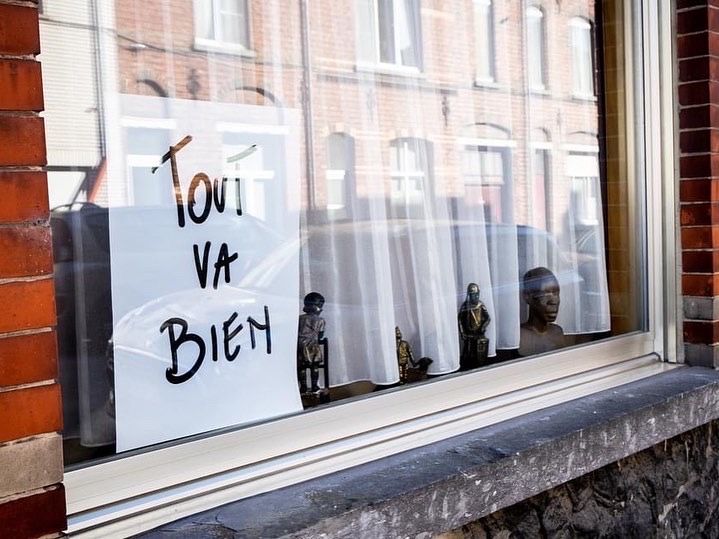 TOUT
VA
BIEN